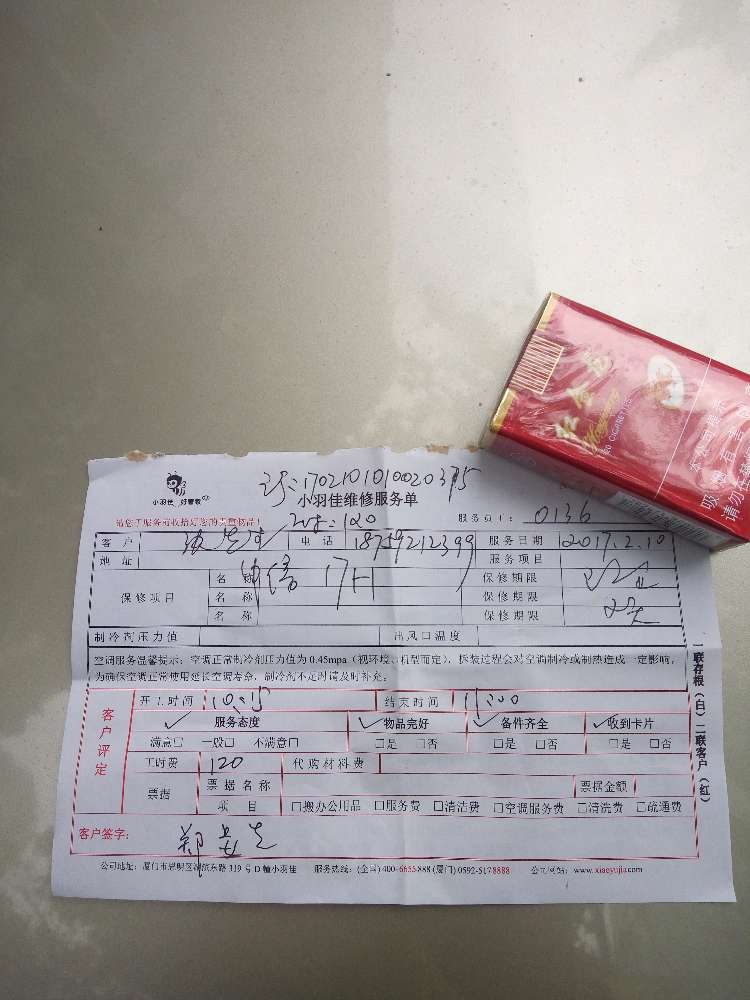 1702101010020375
小羽佳 好管家
小羽佳维修服务单
请您于服务前收拾好您的贵重物品!
120
服务员工: 0136
客户 电话 18759212399 服务日期 2017.2.10
地址 服务项目
保修项目 名称 17H 保修期限
名称 保修期限
名称 保修期限
制冷剂压力值 出风口温度
空调服务温馨提示: 空调正常制冷剂压力值为 0.45mpa (视环境、机型而定), 拆装过程会对空调制冷或制热造成一定影响,
为确保空调正常使用延长空调寿命, 制冷剂不足时请及时补充。
客户评定
开工时间 10:15 结束时间 11:00
✓ 服务态度 ✓ 物品完好 ✓ 备件齐全 ✓ 收到卡片
满意□ 一般□ 不满意□ □是 □否 □是 □否 □是 □否
工时费 120 代购材料费
票据 票据名称 票据金额
项目 □搬办公用品 □服务费 □清洁费 □空调服务费 □清洗费 □疏通费
客户签字:
公司地址: 厦门市思明区湖滨东路 319 号 D 幢小羽佳 服务热线: (全国) 400-6655888 (厦门) 0592-5178888 公司网站: www.xiaoyujia.com
一联存根(白) 二联客户(红)
CIGARETTES